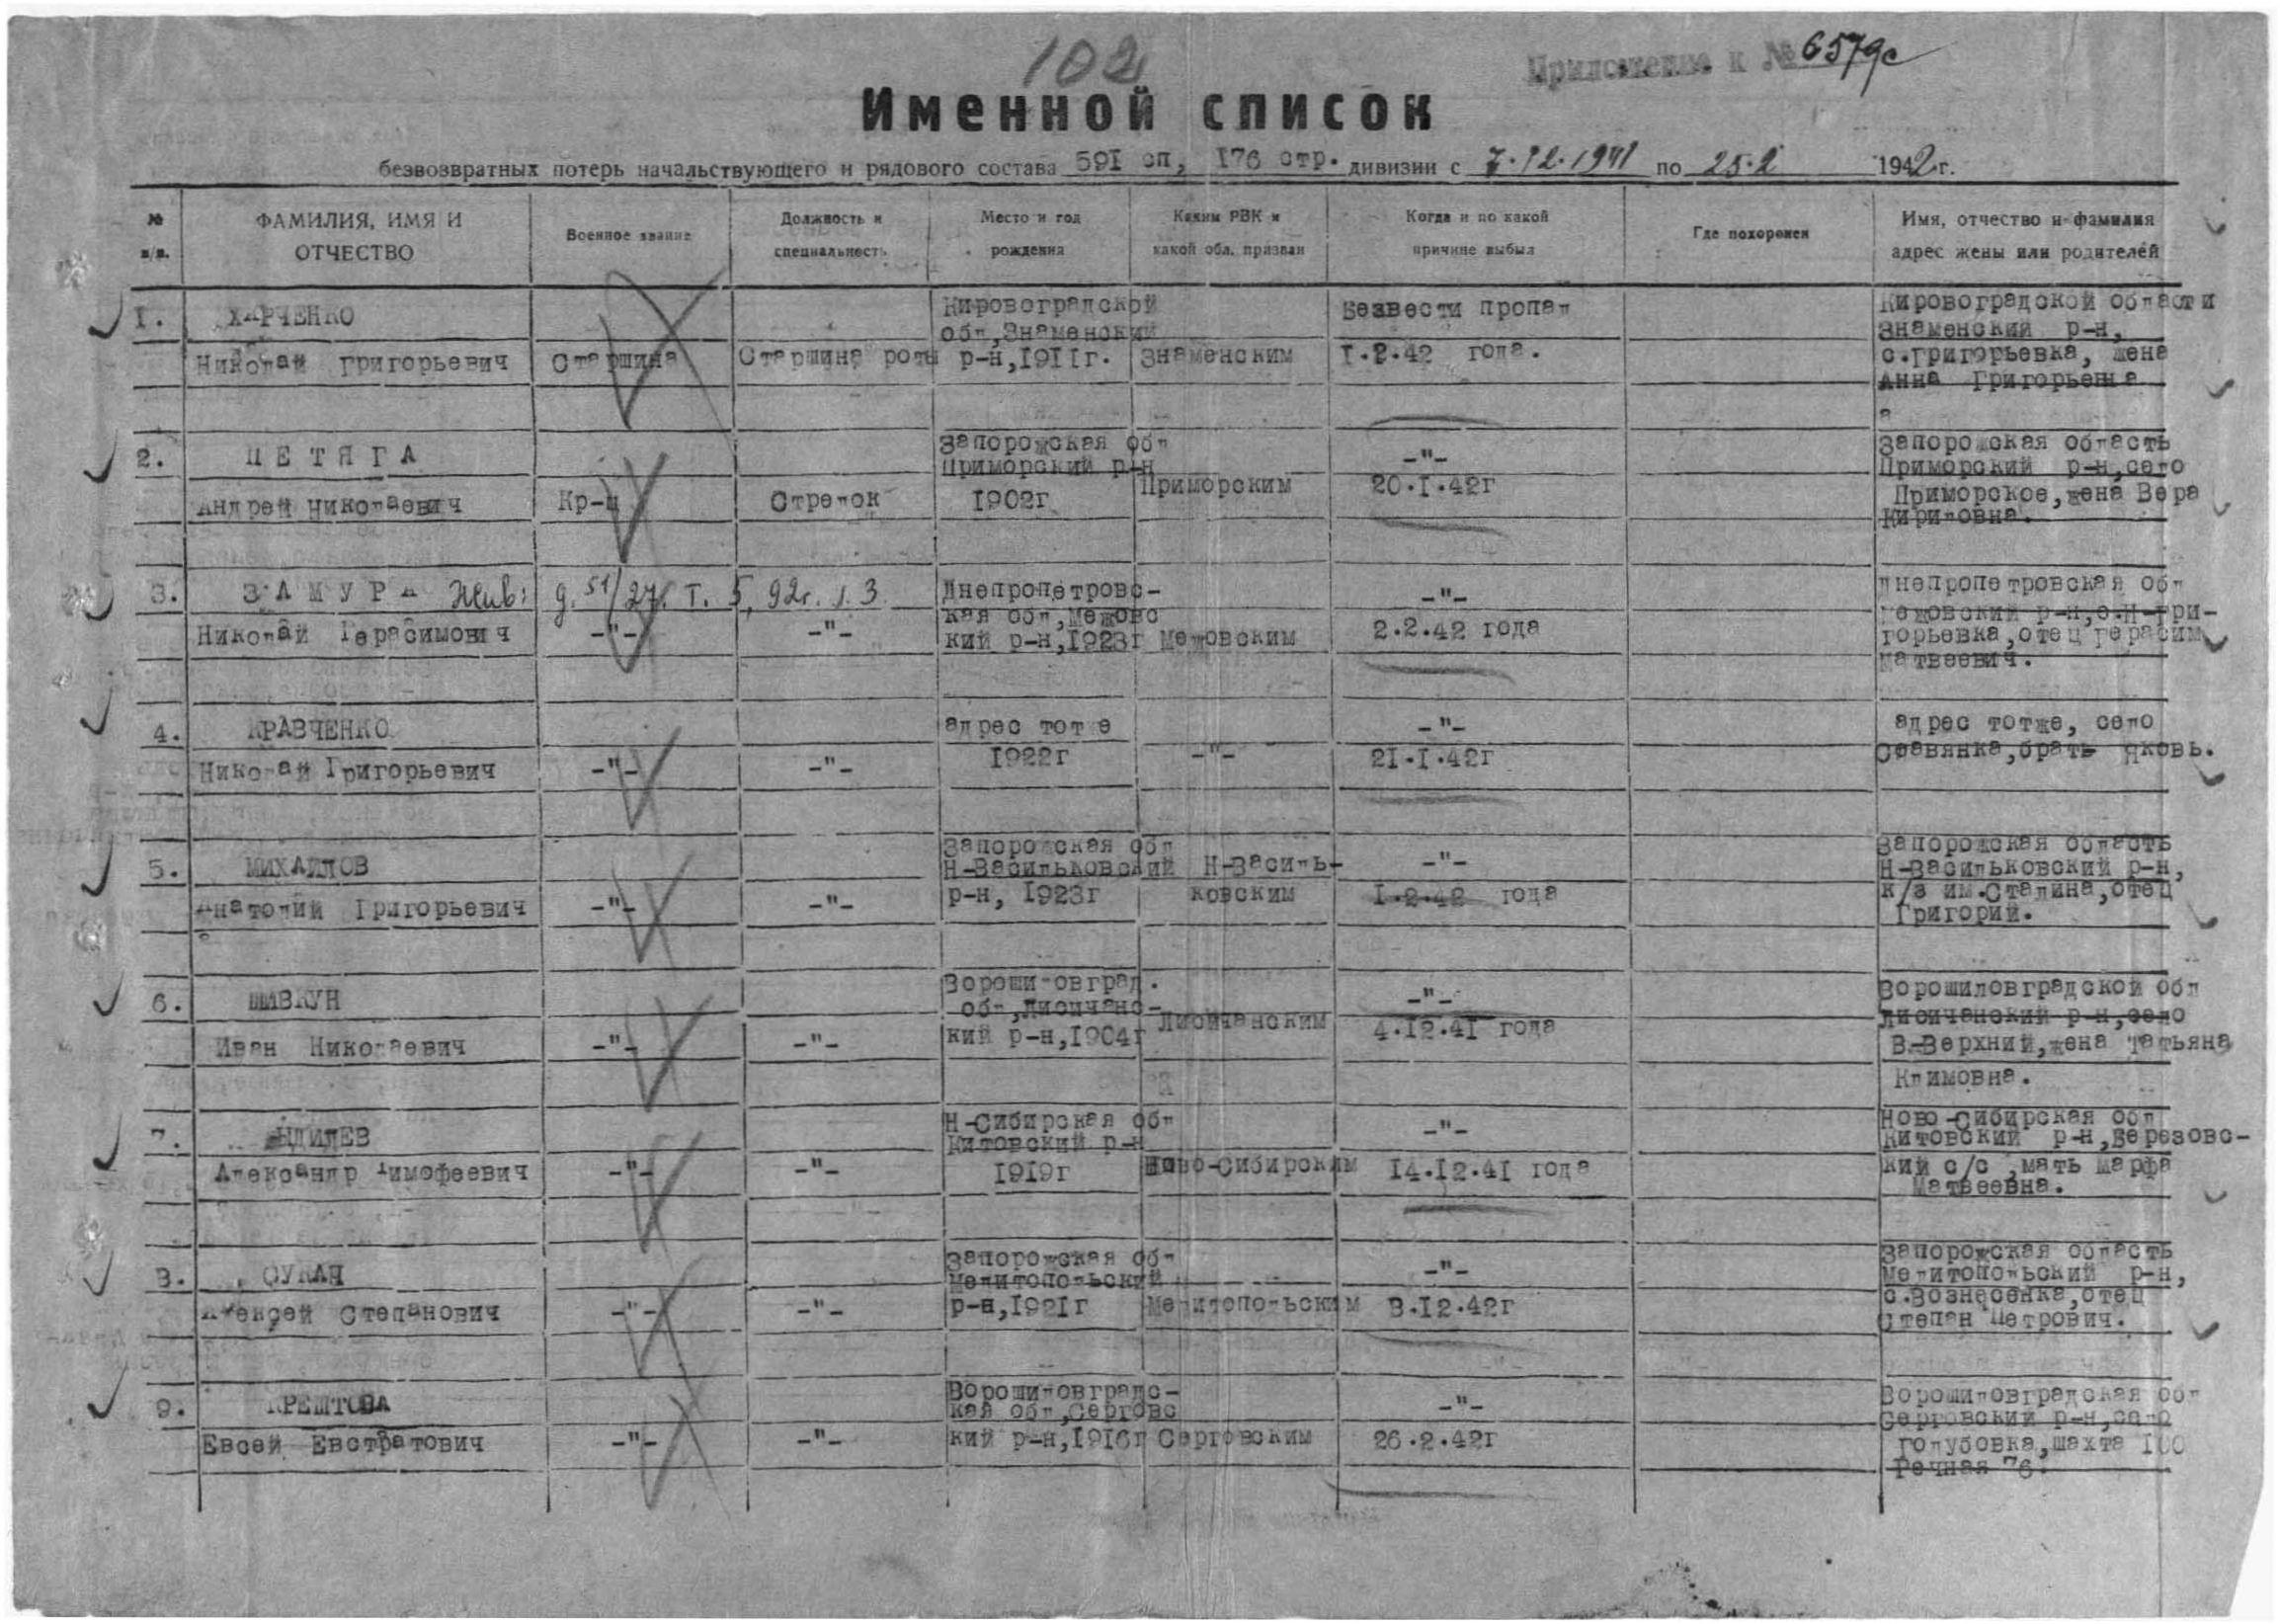 102
Приложение к № 6579с
Именной список
безвозвратных потерь начальствующего и рядового состава 591 сп, 176 стр. дивизии с 7.12.1941 по 25.2 1942 г.
№ п/п.
ФАМИЛИЯ, ИМЯ И ОТЧЕСТВО
Военное звание
Должность и специальность
Место и год рождения
Каким РВК и какой обл. призван
Когда и по какой причине выбыл
Где похоронен
Имя, отчество и фамилия адрес жены или родителей
1. ХАРЧЕНКО
Николай Григорьевич
Старшина
Старшина роты
Кировоградской
обл,Знаменский
р-н,1911г.
Знаменским
Безвести пропал
1.2.42 года.
Кировоградской области
Знаменский р-н,
с.Григорьевка, жена
Анна Григорьевна
2. ПЕТЯГА
Андрей Николаевич
Кр-ц
Стрелок
Запорожская обл
Приморский р-н
1902г
Приморским
-"-
20.1.42г
Запорожская область
Приморский р-н,село
Приморское,жена Вера
Кириловна.
3. ЗАМУРА Жив: д. 51/27. т. 5, 92г. л. 3
Николай Герасимович
-"-
-"-
Днепропетровс-
кая обл,Межовс
кий р-н,1923г
Межовским
-"-
2.2.42 года
Днепропетровская обл
Межовский р-н,с.Н-Гри-
горьевка,отец Герасим
Матвеевич.
4. КРАВЧЕНКО
Николай Григорьевич
-"-
-"-
адрес тотже
1922г
-"-
-"-
21.1.42г
адрес тотже, село
Славянка,брать Яковь.
5. МИХАЙЛОВ
Анатолий Григорьевич
-"-
-"-
Запорожская обл
Н-Васильковский
р-н, 1923г
Н-Василь-
ковским
-"-
1.2.42 года
Запорожская область
Н-Васильковский р-н,
к/з им.Сталина,отец
Григорий.
6. ШИВКУН
Иван Николаевич
-"-
-"-
Ворошиловград.
обл,Лисичанс-
кий р-н,1904г
Лисичанским
-"-
4.12.41 года
Ворошиловградской обл
Лисичанский р-н,село
В-Верхний,жена Татьяна
Климовна.
7.
Александр Тимофеевич
-"-
-"-
Н-Сибирская обл
Китовский р-н
1919г
Ново-Сибирским
-"-
14.12.41 года
Ново-Сибирская обл
Китовский р-н,Березовс-
кий с/с ,мать Марфа
Матвеевна.
8. СУКАЧ
Алексей Степанович
-"-
-"-
Запорожская обл
Мелитопольский
р-н,1921г
Мелитопольским
-"-
3.12.42г
Запорожская область
Мелитопольский р-н,
с.Вознесенка,отец
Степан Петрович.
9. КРЕШТОВА
Евсей Евстратович
-"-
-"-
Ворошиловградс-
кая обл,Серговс
кий р-н,1916г
Серговским
-"-
26.2.42г
Ворошиловградская обл
Серговский р-н,село
Голубовка,шахта 100
Речная 76.